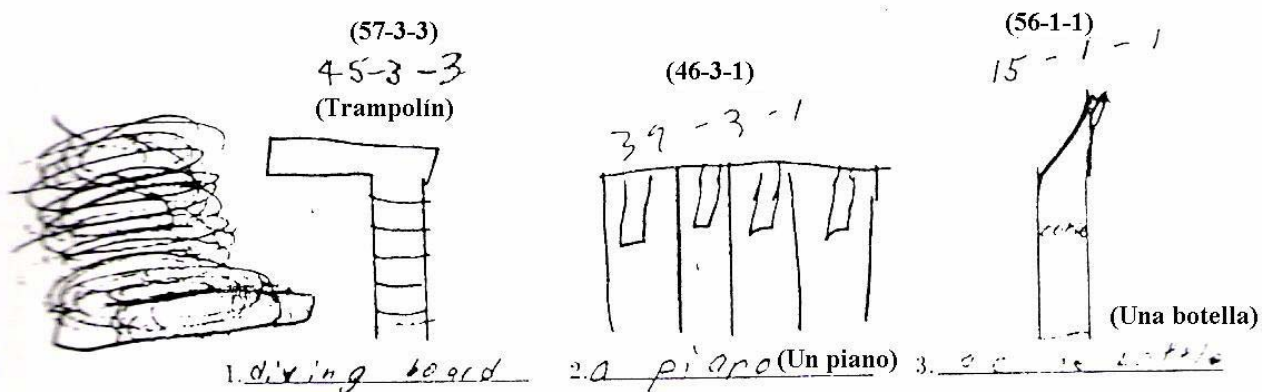 (57-3-3)
45-3-3
(Trampolín)
(46-3-1)
39-3-1
(56-1-1)
15-1-1
(Una botella)
1. diving board
2. a piano (Un piano)
3.